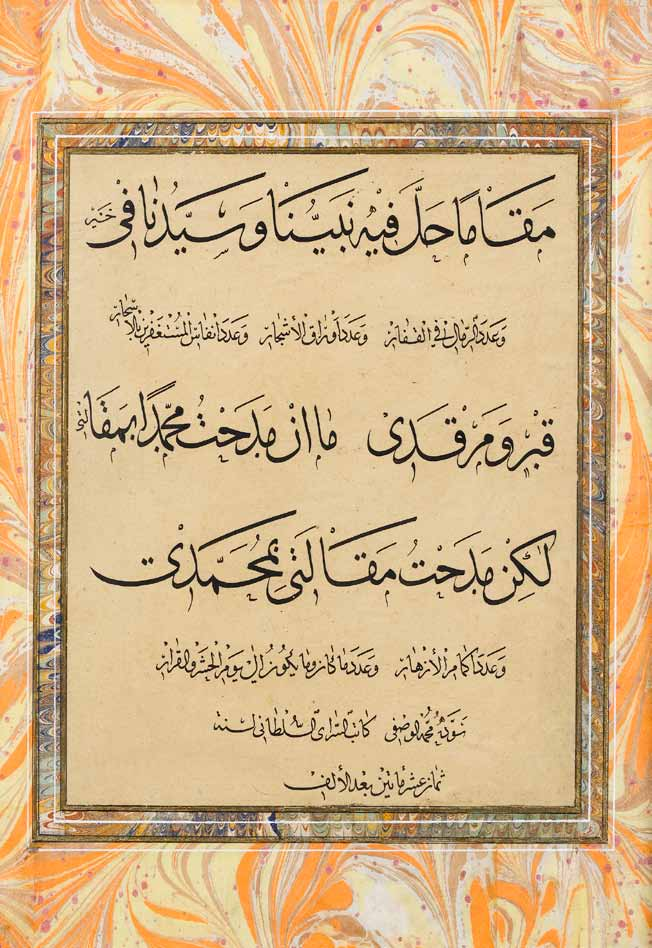 مَقَامًا حَلَّ فِيهِ نَبِيُّنَا وَسَيِّدُنَا فِي خَيْرِ
وَعَدَدَ الرِّمَالِ فِي الْقِفَارِ وَعَدَدَ أَوْرَاقِ الْأَشْجَارِ وَعَدَدَ أَنْفَاسِ الْمُسْتَغْفِرِينَ بِالْأَسْحَارِ
قَبْرٍ وَمَرْقَدِي مَا اِنْ مَدَحْتُ مُحَمَّدًا بِمَقَالَتِي
لٰكِنْ مَدَحْتُ مَقَالَتِي بِمُحَمَّدِي
وَعَدَدَ اَكْمَامِ الْأَزْهَارِ وَعَدَدَ مَا كَانَ وَمَا يَكُونُ اِلَى يَوْمِ الْحَشْرِ وَالْقَرَارِ
سَوَّدَهُ مُحَمَّد الوَصْفِي كَاتِبُ السَّرَايِ السُّلْطَانِي لِسَنَةِ
ثَمَانَ عَشَرَ مِائَتَيْنِ بَعْدَ الْأَلْفِ